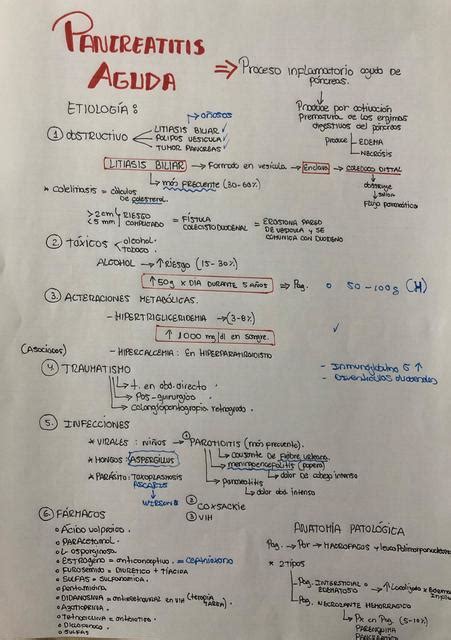 PANCREATITIS
AGUDA
⇒ Proceso inflamatorio agudo de
páncreas.
Produce por activación
prematura de las enzimas
digestivas del páncreas
produce EDEMA
NECROSIS
ETIOLOGÍA:
① obstructivo
LITIASIS BILIAR
POLIPOS VESICULA
TUMOR PANCREAS
LITIASIS BILIAR → Formado en vesícula → enclava → COLEDOCO DISTAL
más frecuente (30-60%)
obstruye
salida
Flujo pancreático
* colelitiasis = cálculos
de colesterol.
>2cm RIESGO
<5mm COMPLICADO = FÍSTULA
COLECISTODUODENAL = EROSIONA PARED
DE VESICULA Y SE
COMUNICA CON DUODENO
② TÓXICOS
alcohol.
tabaco.
ALCOHOL → ↑ RIESGO (15-30%)
↑ 50g X DIA DURANTE 5 AÑOS ⇒ Pag. 50-100g (H)
③ ALTERACIONES METABÓLICAS.
- HIPERTRIGLICERIDEMIA → (3-8%)
↑ 1000 mg/dl en sangre.
(Asociados) - HIPERCALCEMIA: EN HIPERPARATIROIDISTO
- Inmunoglobulina G ↑
④ TRAUMATISMO
t. en abd. directo
Pos-quirurgico
colangiopantografia retrograda.
⑤ INFECCIONES
* VIRALES: NIÑOS → ① PAROTIDITIS (más frecuente).
causante de Fiebre urleana
meningoencefalitis (papera)
dolor de cabeza intenso
pancreatitis
dolor abd intenso
* HONGOS: ASPERGILLUS
* PARÁSITO: TOXOPLASMOSIS
ASCARIS
② COXSACKIE
③ VIH
⑥ FÁRMACOS
◦ Ácido valproico.
◦ PARACETAMOL.
◦ L-asparginasa.
◦ ESTRÓGENO = anticonceptivo. = ceftriaxona
◦ FUROSEMIDO = DIURÉTICO + TIACIDA
◦ SULFAS = SULFONAMIDA.
◦ Pentamidina
◦ DIDANOSINA = antirretroviral en VIH (terapia TARGA)
◦ Azatioprina.
◦ Tetraciclina = antibiotico
◦ Diclofenaco.
◦ SULFAS
ANATOMÍA PATOLÓGICA
Pag. → Por → MACROFAGOS y leucoPolimorfonucleares
* 2 TIPOS
Pag. INTERSTICIAL O
EDEMATOSO → ↑ Localizado x Edema
Pag. NECROZANTE HEMORRAGICO
→ Px en Pag. (5-10%)
PARENQUIMA